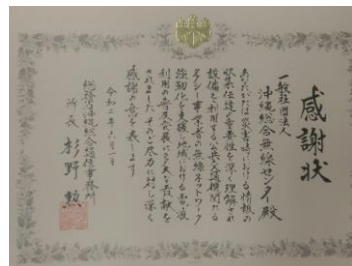 感謝状
一般社団法人
沖縄総合無線センター殿
あなたは災害時における情報の
収集伝達の重要性を深く理解され
設備を利用する公共交通機関たる
タクシー事業者の無線ネットワーク
強靱化を支援し地域における電波
利用の普及発展に多大な貢献を
されました そのご尽力に対し深く
感謝の意を表します
令和二年六月一日
総務省沖縄総合通信事務所
所長 杉野 勲